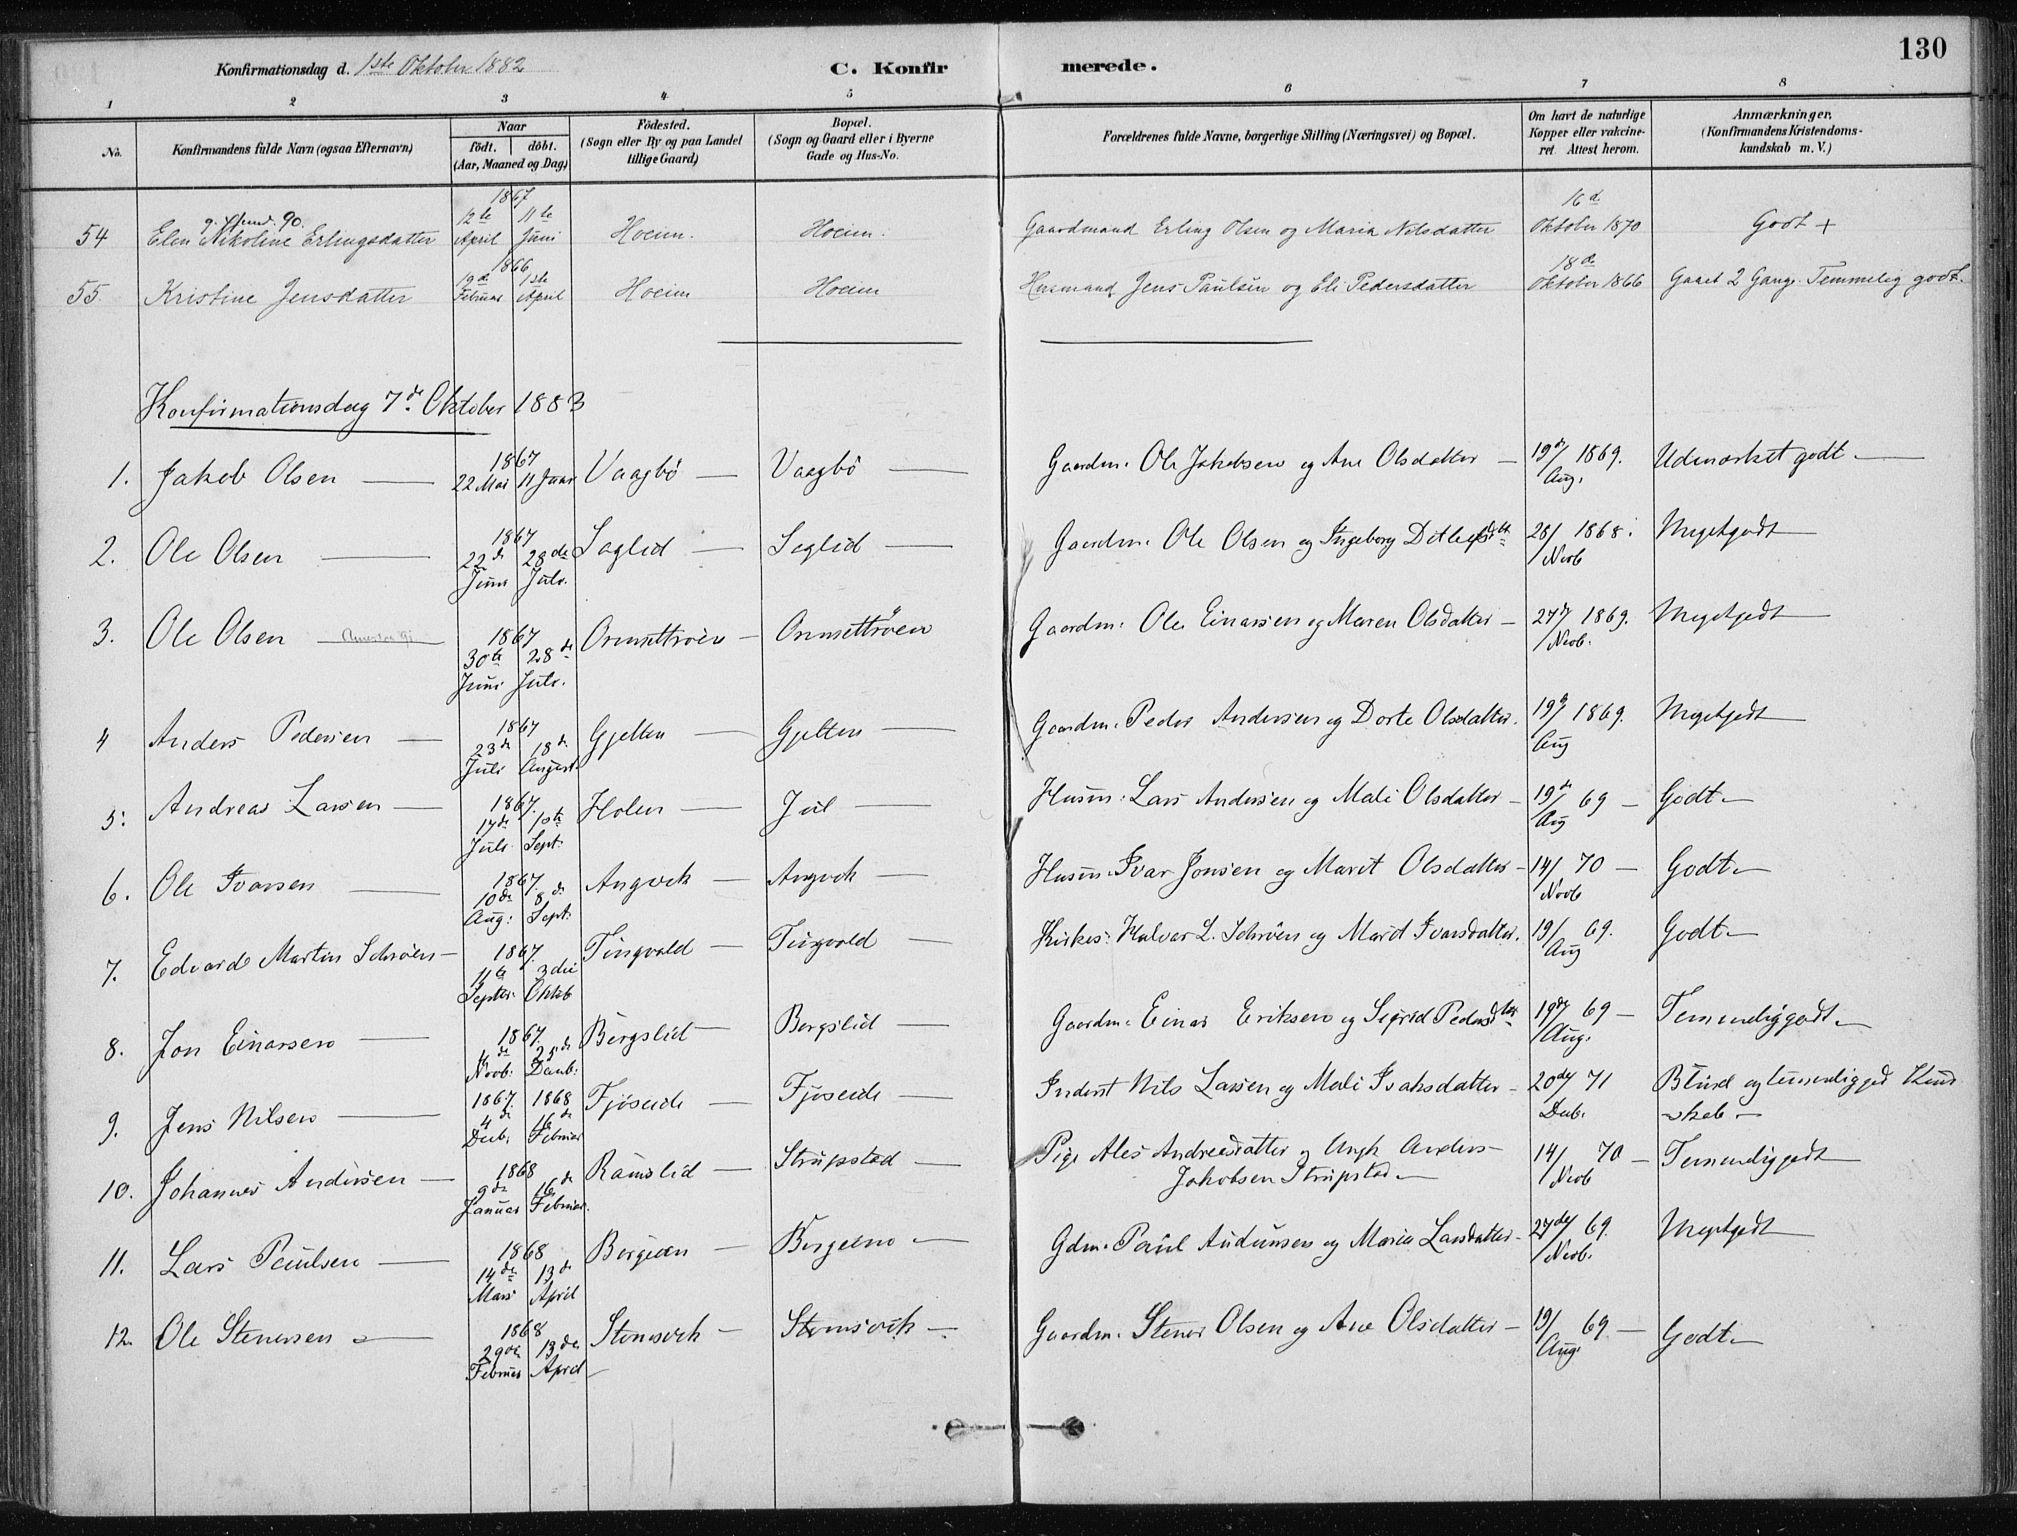 130
Konfirmationsdag d. 1ste Oktober 1882
C. Konfirmerede.
1 2 3 4 5 6 7 8
No. Konfirmandens fulde Navn (ogsaa Efternavn) Naar födt. döbt. (Aar, Maaned og Dag) Födested. (Sogn eller By og paa Landet tillige Gaard) Bopæl. (Sogn og Gaard eller i Byerne Gade og Hus-No. Forældrenes fulde Navne, borgerlige Stilling (Næringsvei) og Bopæl. Om havt de naturlige Kopper eller vakcineret. Attest herom. Anmærkninger. (Konfirmandens Kristendomskundskab m. V.)
54 Elen Nikoline Erlingsdatter 1867 12te April 11te Juni Hoeim. Hoeim. Gaardmand Erling Olsen og Maria Nilsdatter 16d Oktober 1870 Godt +
55 Kristine Jensdatter 1866 19de Februar 1ste April Hoeim Hoeim Husmand Jens Paulsen og Eli Pedersdatter 18de Oktober 1866 Gaaet 2 Gange. Temmelig godt.
Konfirmationsdag 7de Oktober 1883
1. Jakob Olsen 1867 22 Mai 11 Juni Vaagbö Vaagbö Gaardm. Ole Jakobsen og Ane Olsdatter 19de/Aug. 1869. Udmærket godt
2. Ole Olsen 1867 22de Juni 28de Juli. Saglid Saglid Gaardm. Ole Olsen og Ingeborg Ditlefsdtr 28/Novb 1868. Megetgodt
3. Ole Olsen 1867 30te Juni 28de Juli. Ormsettröen Ormsettröen Gaardm. Ole Einarsen og Maren Olsdatter 27de/Novb. 1869. Megetgodt
4 Anders Pedersen 1867 23de Juli 18de August. Gjelten Gjelten Gaardm. Peder Andersen og Dorte Olsdatter. 19de/Aug 1869. Megetgodt
5. Andreas Larsen 1867. 17de Juli 1ste Sept. Holen Jul Husm. Lars Andersen og Mali Olsdatter 19de/Aug 69 Godt
6. Ole Ivarsen 1867. 10de Aug: 8de Sept: Angvik Angvik Husm. Ivar Jonsen og Marit Olsdatter 14/Novb 70 Godt
7. Edvard Martin Schröen 1867. 11te Septbr. 3die Oktob Tingvold Tingvold Kirkes: Halvar L. Schröen og Marit Ivarsdatter. 19/Aug 69. Godt
8. Jon Einarsen 1867. Novb. 25de Decnb: Bergslid Bergslid Gaardm. Einar Eriksen og Sigrid Pedersdtr 19de/Aug. 69 Temmeliggodt
9. Jens Nilsen 1867. 4de Decb. 1868 16de Februar Fjöseide Fjöseide Inderst Nils Larsen og Mali Isaksdatter 20de/Decb. 71 Blind og temmeliggod Kundskab
10. Johannes Andersen 1868 9de Januar 16de Februar. Ramslid Strupstad Pige Ales Andreasdatter og Ungk Anders Jakobsen Strupstad 14/Novb 70 Temmeliggodt
11. Lars Paulsen 1868 14de Mars 13de April Bergeem Bergeem Gdm. Paul Audunsen og Maria Larsdatter 27de/Novb. 69. Megetgodt
12. Ole Stenersen 1868 29de Februar 13de April Stensvik Stensvik Gaardm. Stener Olsen og Ane Olsdatter 19/Aug. 69 Godt